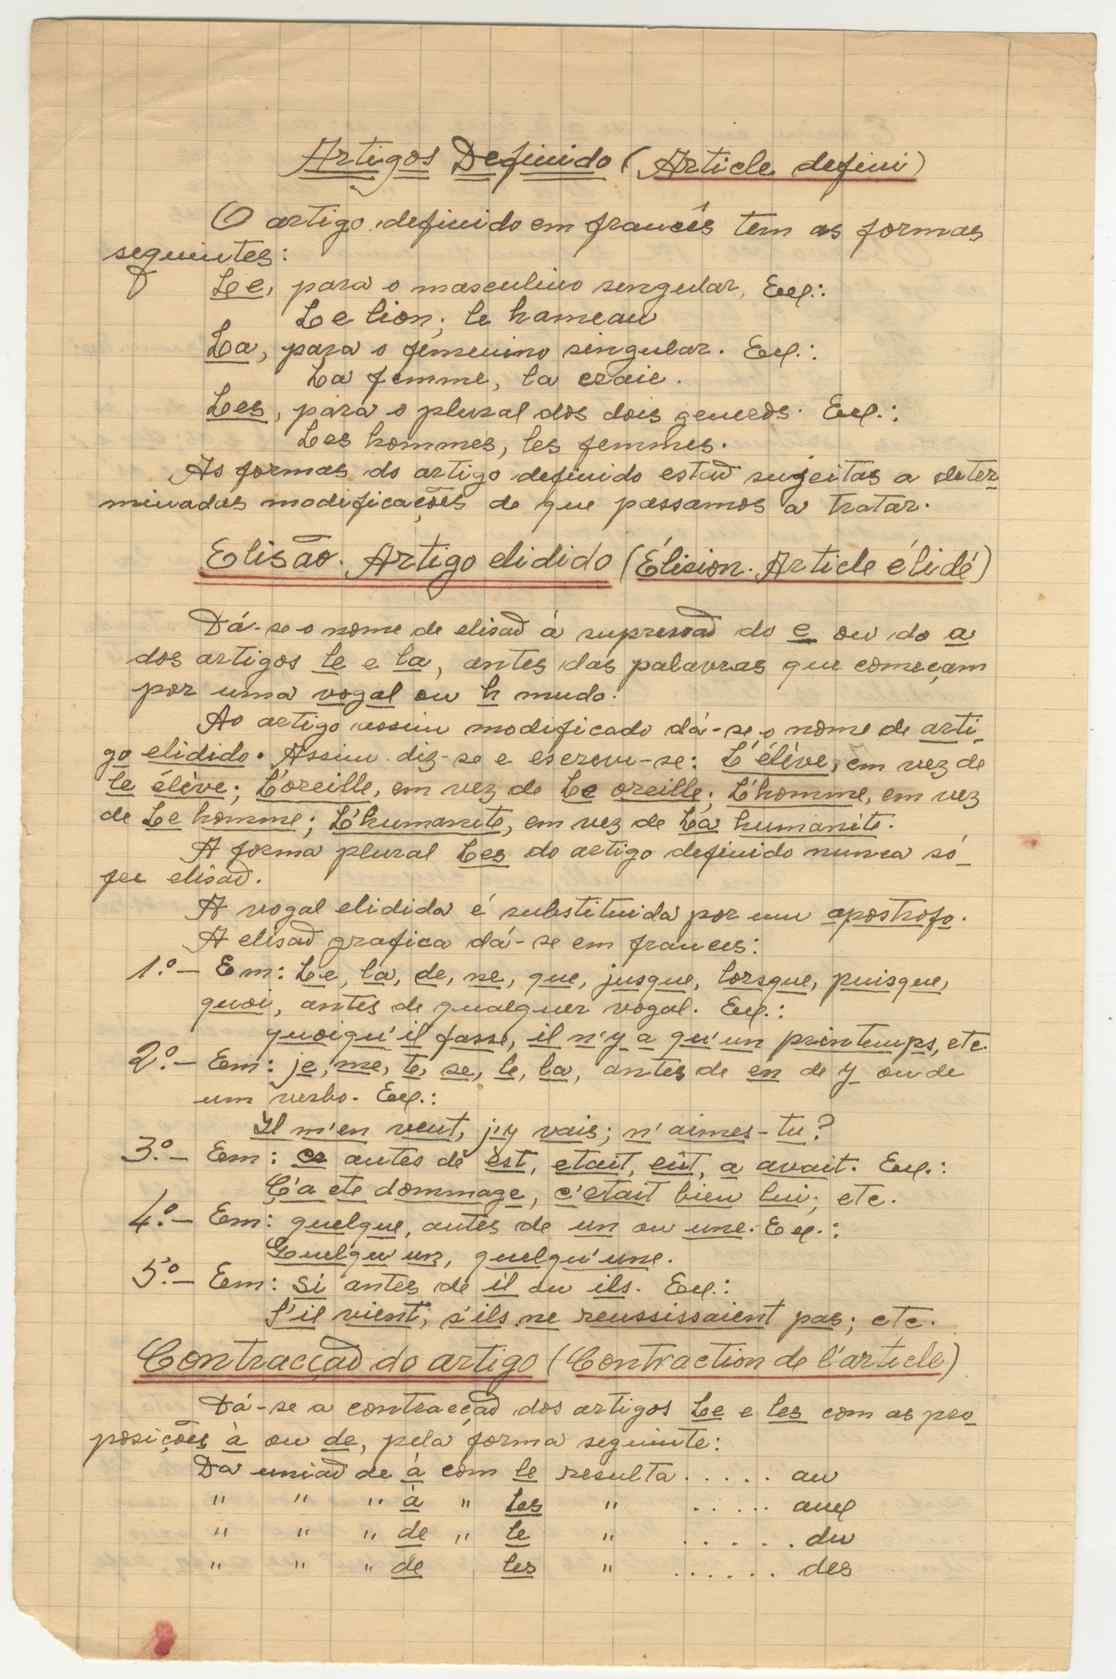 Artigos Definido (Article defini)
O artigo definido em francês tem as formas
seguintes:
Le, para o masculino singular. Ex.:
Le lion; le hameau
La, para o femenino singular. Ex.:
La femme, la craie.
Les, para o plural dos dois generos. Ex.:
Les hommes, les femmes.
As formas do artigo definido estão sujeitas a deter
minadas modificações de que passamos a tratar.
Elisão. Artigo elidido (Élision. Article élidé)
Dá-se o nome de elisão á supressão do e ou do a
dos artigos le e la, antes das palavras que começam
por uma vogal ou h mudo.
Ao artigo assim modificado dá-se o nome de arti-
go elidido. Assim diz-se e escreve-se: L'élève, em vez de
le élève; L'oreille, em vez de Le oreille; L'homme, em vez
de Le homme; L'humanite, em vez de La humanite.
A forma plural Les do artigo definido nunca so-
fre elisão.
A vogal elidida é substituida por um apostrofo.
A elisão grafica dá-se em frances:
1.º- Em: Le, la, de, ne, que, jusque, lorsque, puisque,
quoi, antes de qualquer vogal. Ex.:
quoiqu'il fasse, il n'y a qu'un printemps, etc.
2.º- Em: je, me, te, se, le, la, antes de en de y ou de
um verbo. Ex.:
Il m'en veut, j'y vais; n'aimes-tu?
3.º- Em: ce antes de est, etait, eût, a avait. Ex.:
Ç'a ete dommage, c'etait bien lui; etc.
4.º- Em: quelque, antes de un ou une. Ex.:
Quelqu'un, quelqu'une.
5.º- Em: si antes de il ou ils. Ex.:
S'il vient; s'ils ne reussissaient pas; etc.
Contracção do artigo (Contraction de l'article)
Dá-se a contracção dos artigos Le e les com as pre
posições à ou de, pela forma seguinte:
Da união de à com le resulta ..... au
" " " à " les " ..... aux
" " " de " le " ...... du
" " " de les " ...... des